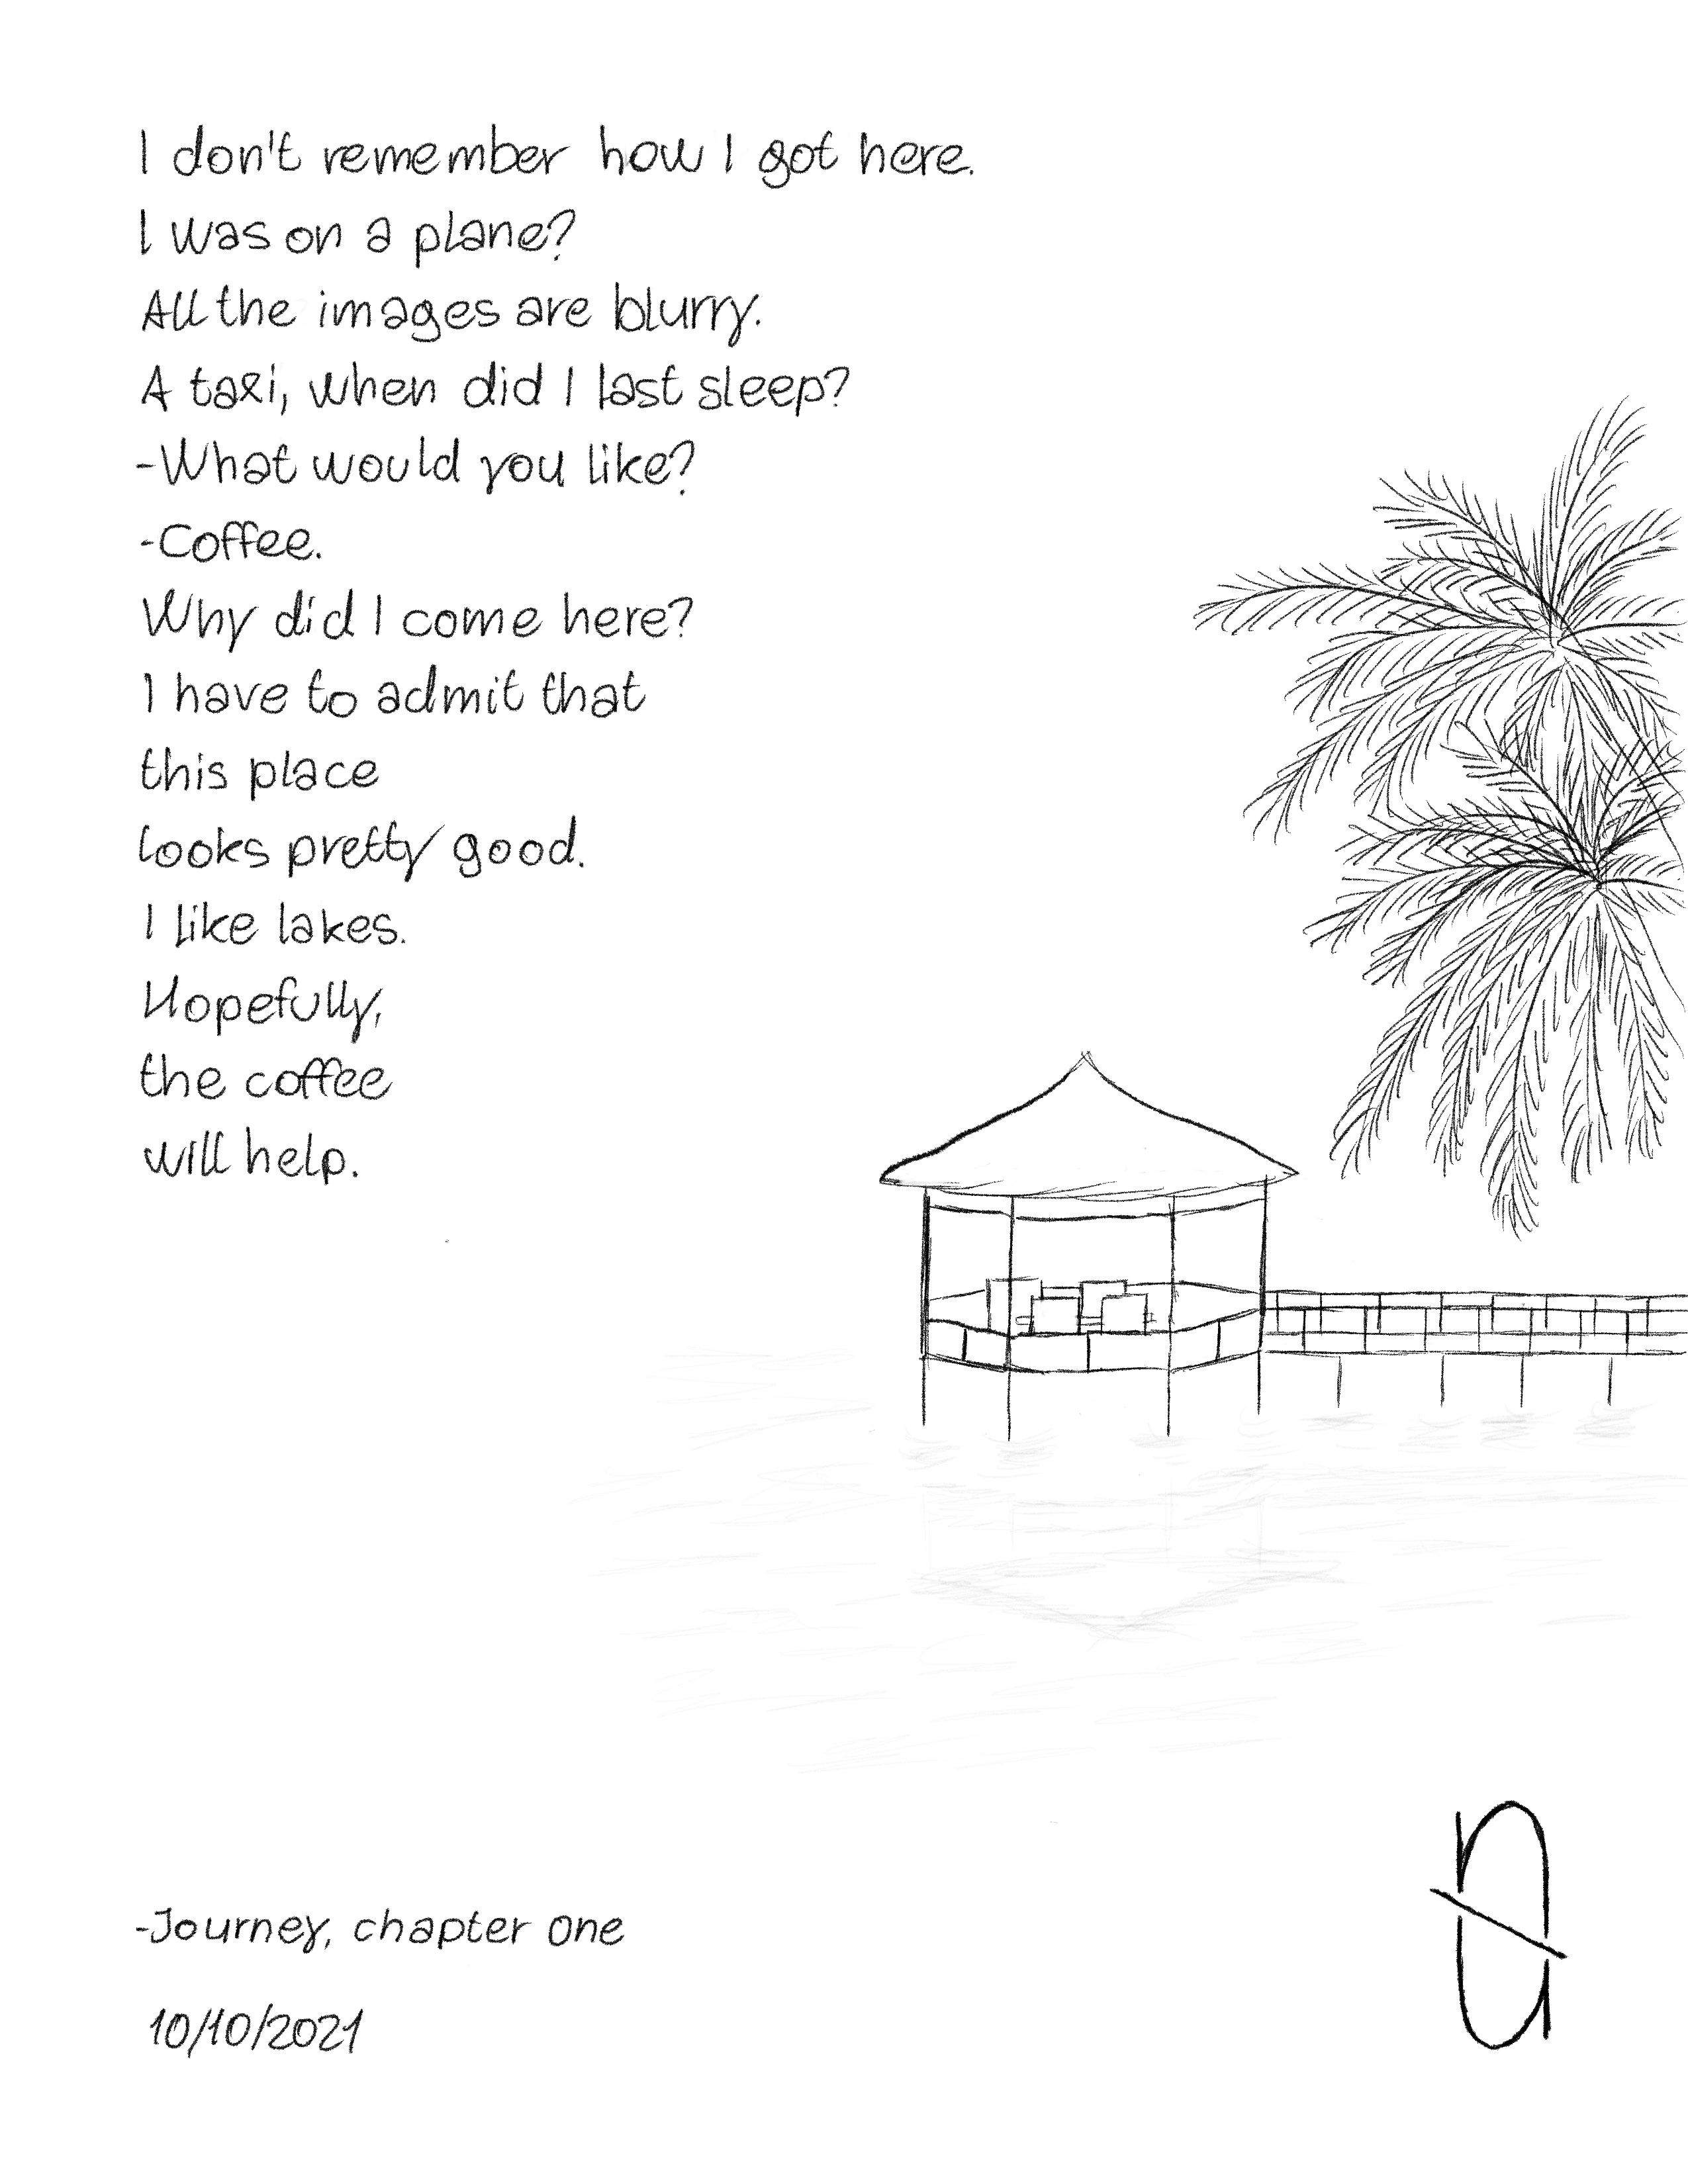 I don't remember how I got here.
I was on a plane?
All the images are blurry.
A taxi, when did I last sleep?
-What would you like?
-Coffee.
Why did I come here?
I have to admit that
this place
looks pretty good.
I like lakes.
Hopefully,
the coffee
will help.
-Journey, chapter one
10/10/2021